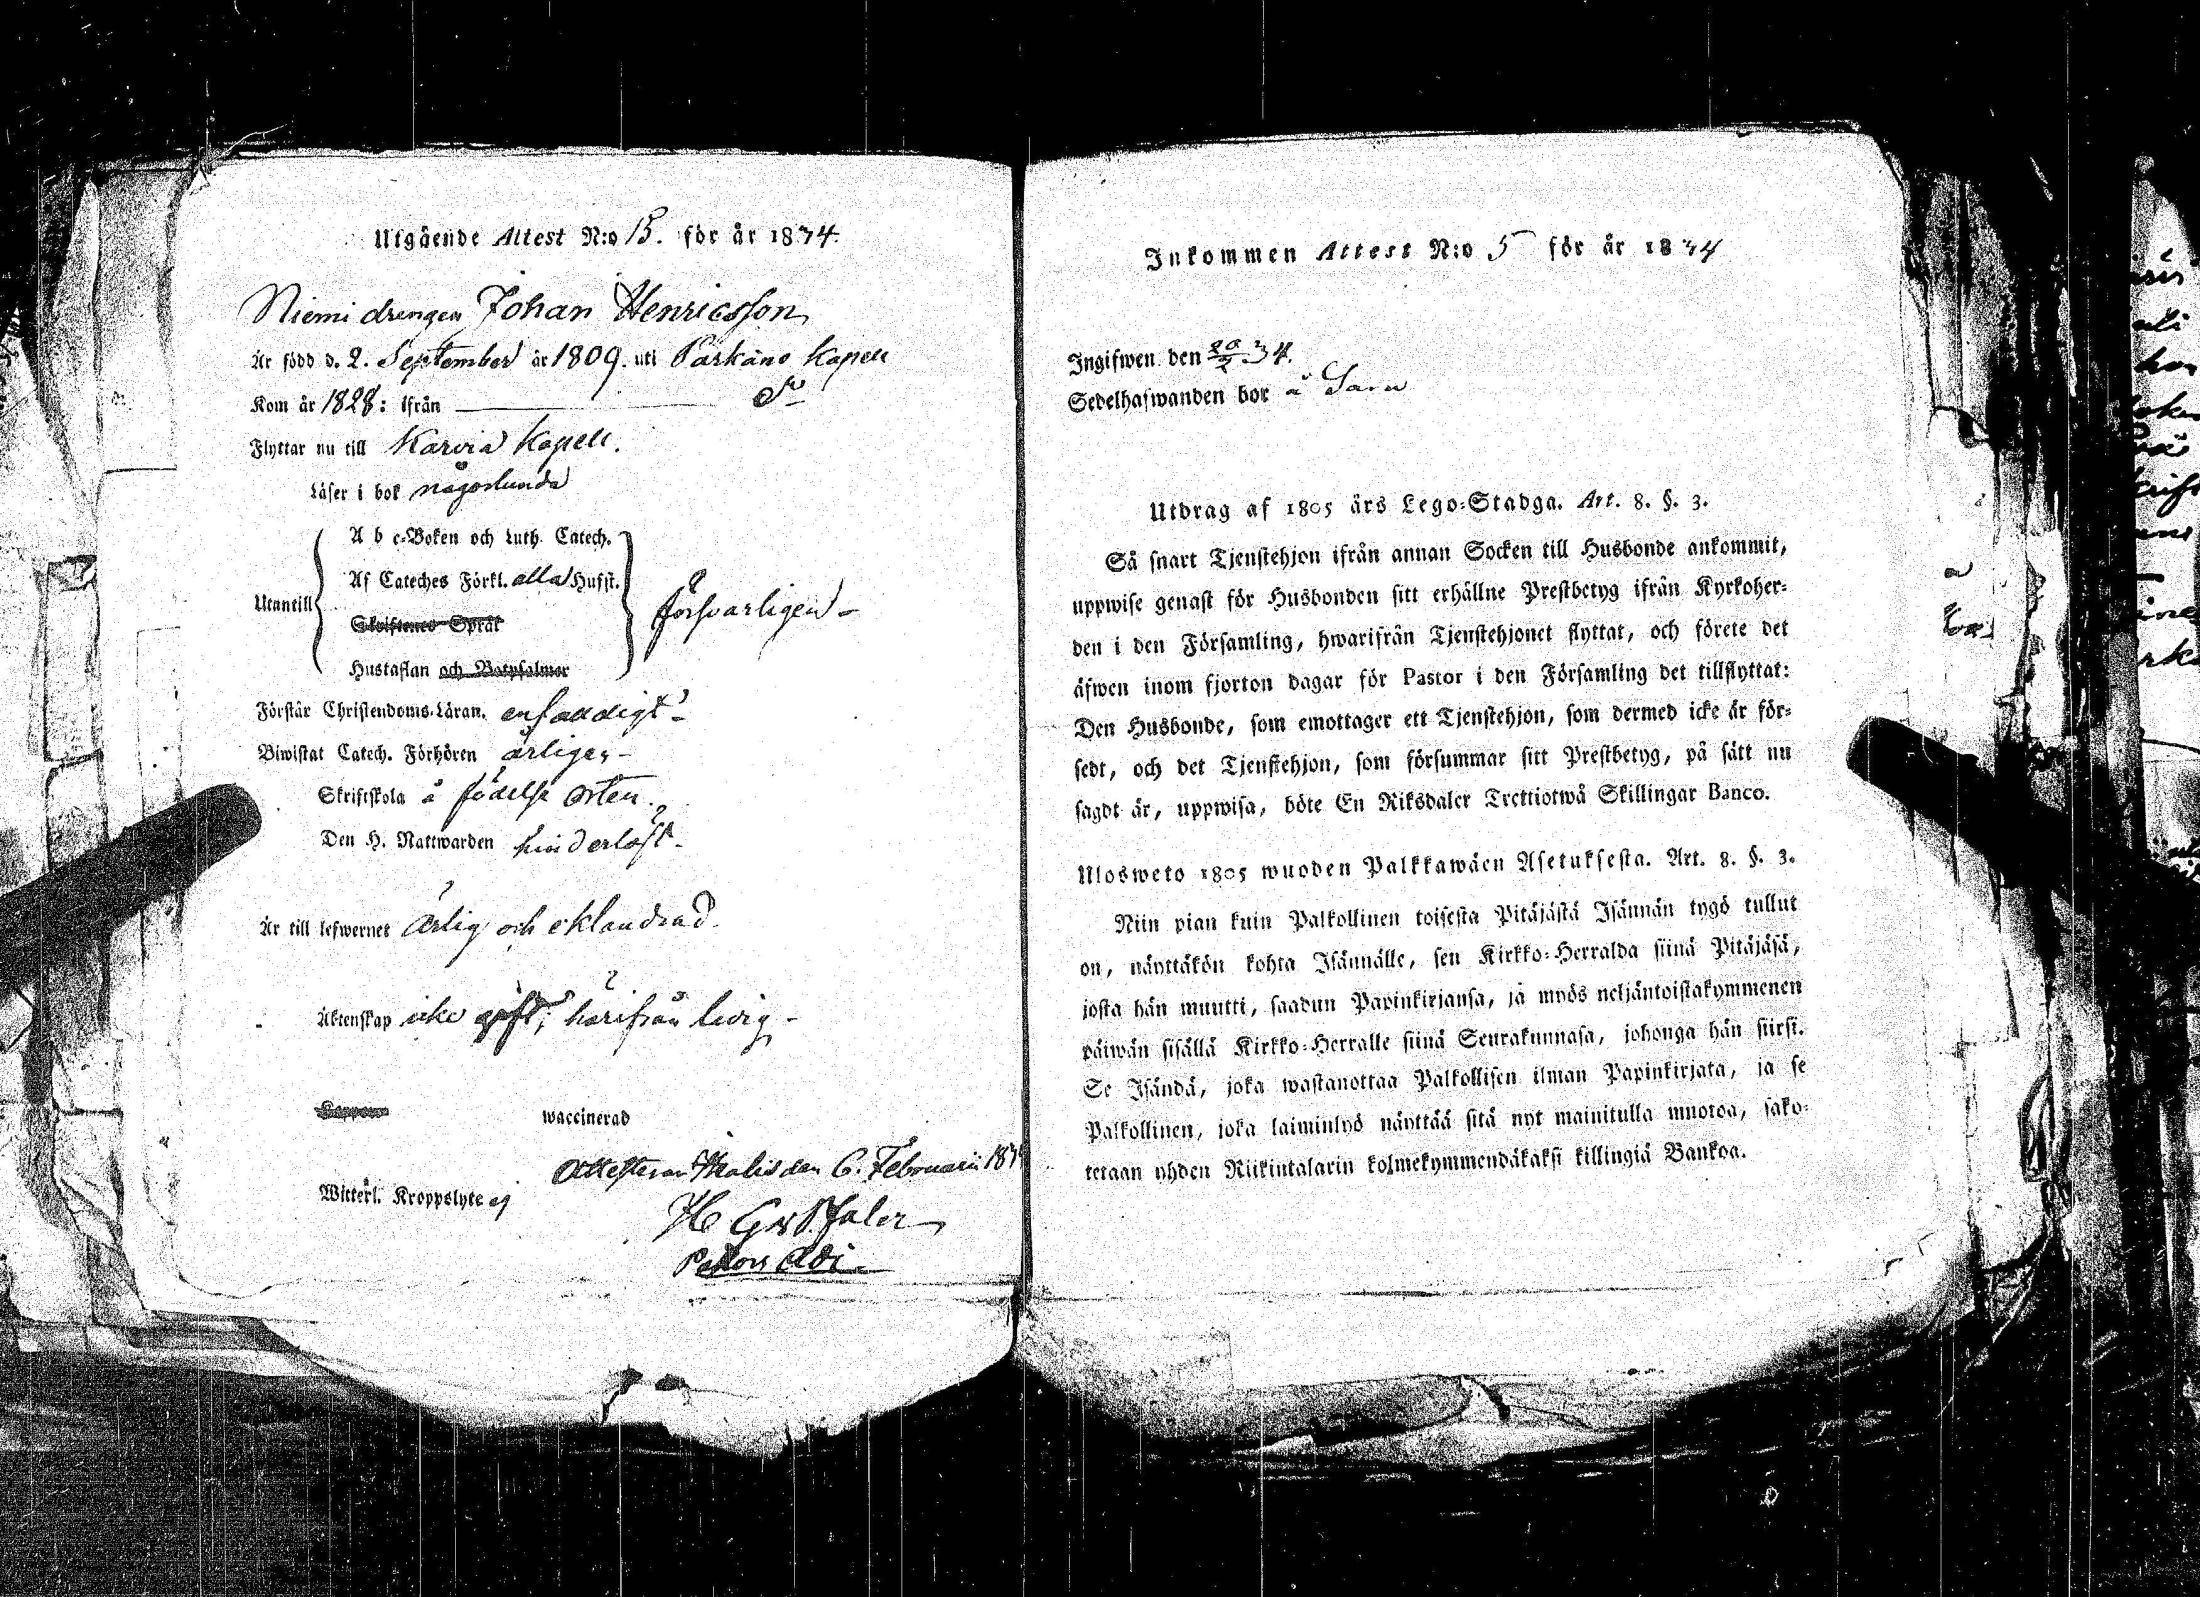 Utgående Attest N:o 13. för år 1834.
Niemi drengen Johan Henricsson
Är född d. 2. September år 1809. uti Parkano Kapell
Kom år 1828: ifrån
Flyttar nu till Karvia Kapell.
Läser i bok någorlunda
A b c-Boken och Luth. Catech.
Af Cateches Förkl. alla Hufst.
Utantill
försvarligen -
Skriftenes Språk
Hustaflan och Botpsalmer
Förstår Christendoms-Läran. enfaldigt -
Biwistat Catech. Förhören årligen -
Skriftskola å födelse orten.
Den H. Nattwarden hinderlöst -
Är till lefwernet ärlig och oklandrad.
Äktenskap icke gift; härifrån ledig -
Koppor
waccinerad
Attesterar Ikalis den 6. Februarii 1834
Witterl. Kroppslyte ej
Pastors Adj.
Inkommen Attest N:o 5 för år 1834
Ingifwen den 20/2 34.
Sedelhafwanden bor å Sara
Utdrag af 1805 års Lego-Stadga. Art. 8. §. 3.
Så snart Tjenstehjon ifrån annan Socken till Husbonde ankommit,
uppwise genast för Husbonden sitt erhållne Prestbetyg ifrån Kyrkoher-
den i den Församling, hwarifrån Tjenstehjonet flyttat, och förete det
äfwen inom fjorton dagar för Pastor i den Församling det tillflyttat:
Den Husbonde, som emottager ett Tjenstehjon, som dermed icke är för-
sedt, och det Tjenstehjon, som försummar sitt Prestbetyg, på sätt nu
sagdt är, uppwisa, böte En Riksdaler Trettiotwå Skillingar Banco.
Ulosweto 1805 wuoden Palkkawäen Asetuksesta. Art. 8. §. 3.
Niin pian kuin Palkollinen toisesta Pitäjästä Isännän tygö tullut
on, näyttäkön kohta Isännälle, sen Kirkko-Herralda siinä Pitäjäsä,
josta hän muutti, saadun Papinkirjansa, ja myös neljäntoistakymmenen
päiwän sisällä Kirkko-Herralle siinä Seurakunnasa, johonga hän siirsi.
Se Isändä, joka wastanottaa Palkollisen ilman Papinkirjata, ja se
Palkollinen, joka laiminlyö näyttää sitä nyt mainitulla muotoa, sako-
tetaan yhden Riikintalarin kolmekymmendäkaksi killingiä Bankoa.